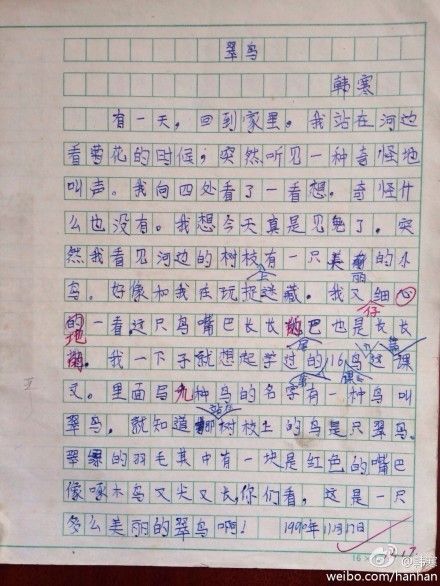 翠鸟
韩寒
有一天，回到家里。我站在河边
看菊花的时候；突然听见一种奇怪地
叫声。我向四处看了一看想。奇怪什
么也没有。我想今天真是见鬼了。突
然我看见河边的树枝上有一只美丽的小
鸟。好像和我在玩捉迷藏。我又仔细
地一看这只鸟嘴巴长长尾巴也是长长
我一下子就想起学过的第16课鸟这课
文。里面写九种鸟的名字有一种鸟叫
翠鸟。就知道站在树枝上的鸟是只翠鸟。
翠绿的羽毛其中有一块是红色的嘴巴
像啄木鸟又尖又长，你们看，这是一只
多么美丽的翠鸟啊！ 1990年11月17日
weibo.com/hanhan